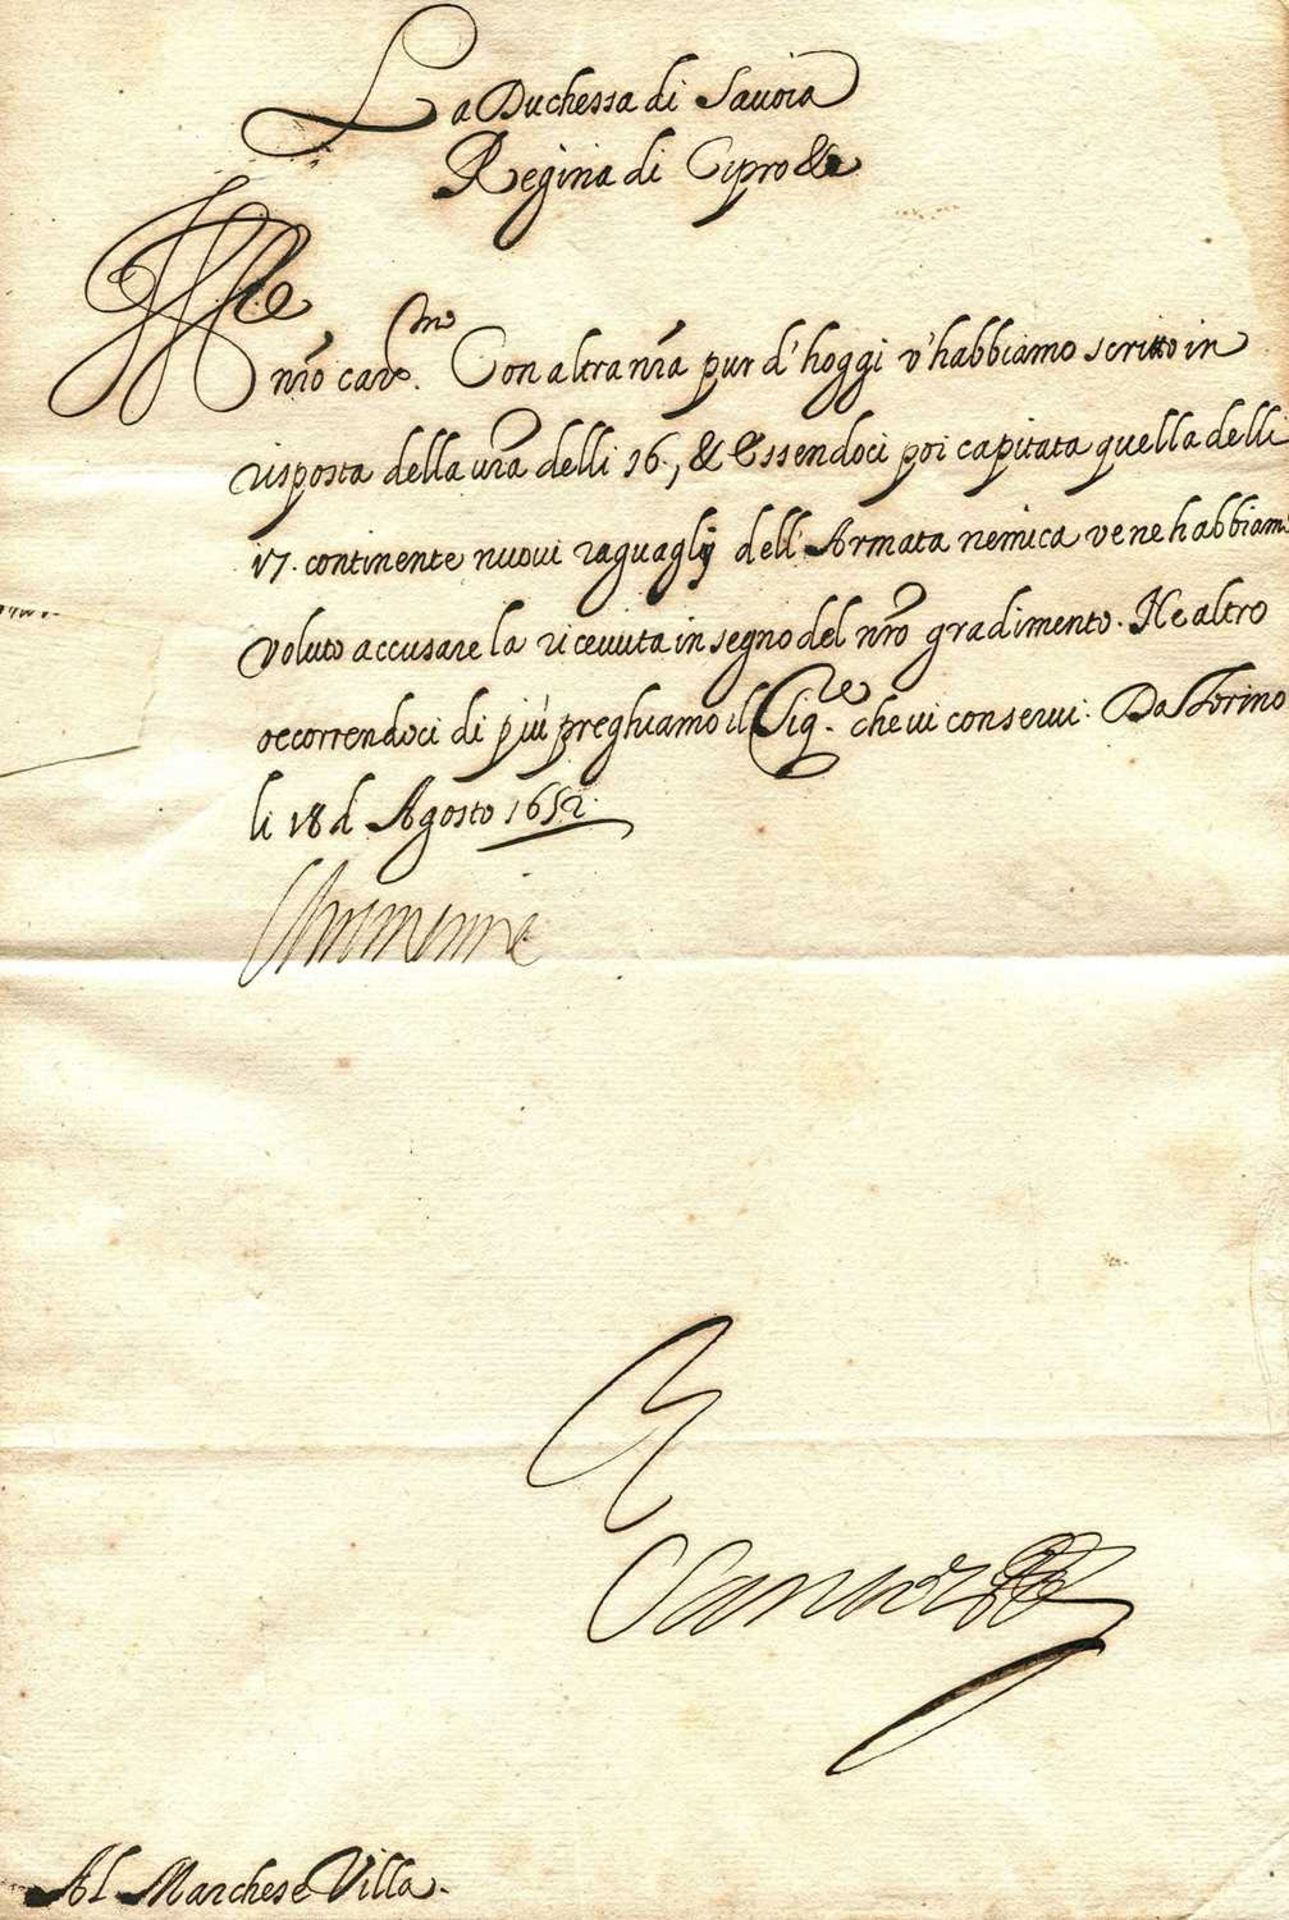 La Duchessa di Sauoia
Regina di Cipro &c
M.le nro car.mo Con altra nra pur d'hoggi v'habbiamo scritto in
risposta della vra delli 16, & Essendoci poi capitata quella delli
17. continente nuoui raguaglij dell'Armata nemica ve ne habbiamo
voluto accusare la riceuuta in segno del nro gradimento. Ne altro
occorrendoci di più preghiamo il Sig.re che ui conserui. Da Torino
li 18 d Agosto 1652.
Al Marchese Villa.